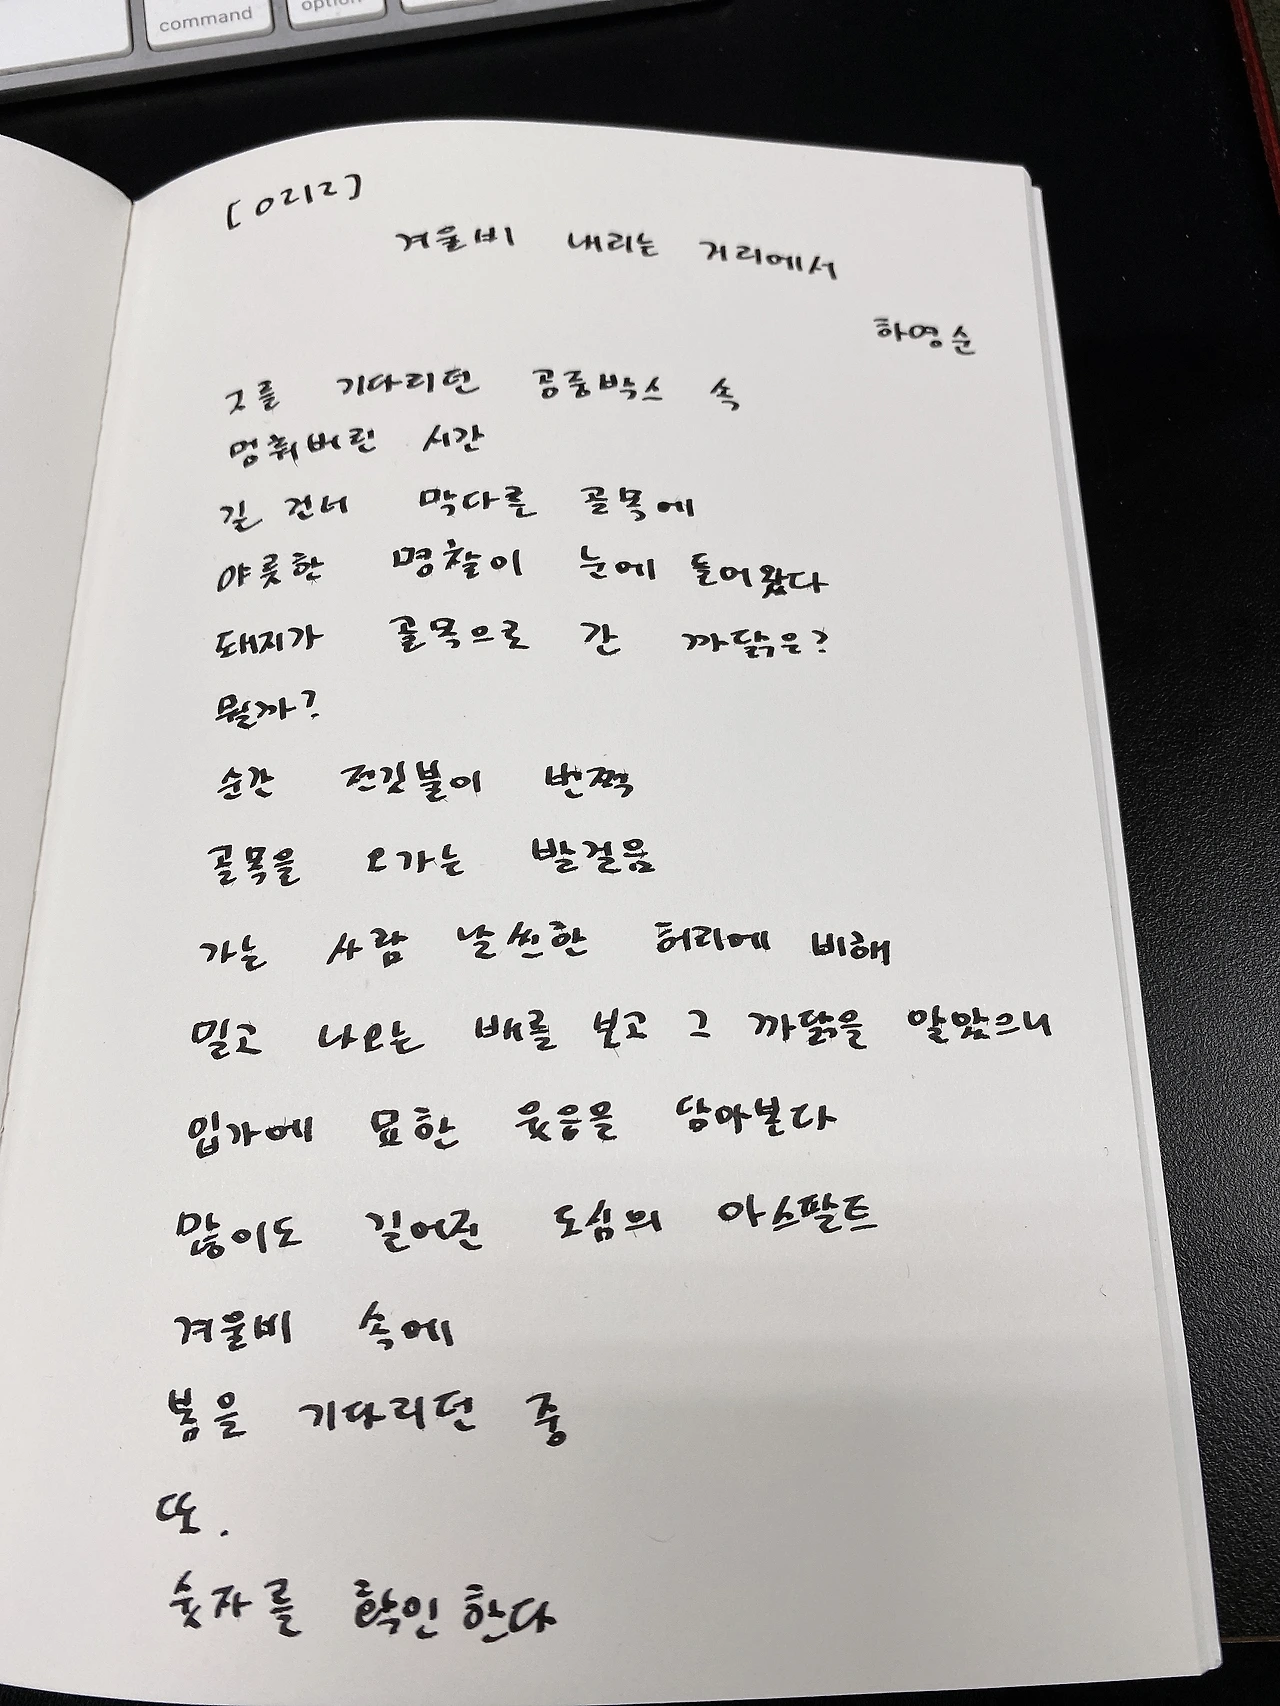 command
option
[0212]
겨울비 내리는 거리에서
하영순
그를 기다리던 공중박스 속
멈춰버린 시간
길 건너 막다른 골목에
야릇한 명찰이 눈에 들어왔다
돼지가 골목으로 간 까닭은?
뭘까?
순간 전깃불이 번쩍
골목을 오가는 발걸음
가는 사람 날씬한 허리에 비해
밀고 나오는 배를 보고 그 까닭을 알았으니
입가에 묘한 웃음을 담아본다
많이도 길어진 도심의 아스팔트
겨울비 속에
봄을 기다리던 중
또.
숫자를 확인한다